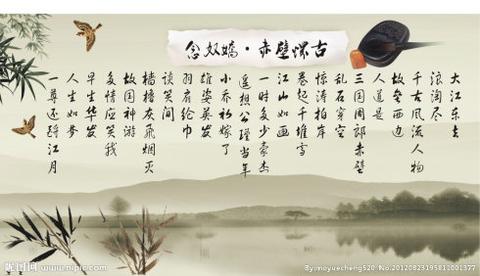 念奴嬌·赤壁懷古
大江东去
浪淘尽
千古风流人物
故垒西边
人道是
三国周郎赤壁
乱石穿空
惊涛拍岸
卷起千堆雪
江山如画
一时多少豪杰
遥想公瑾当年
小乔初嫁了
雄姿英发
羽扇纶巾
谈笑间
樯橹灰飞烟灭
故国神游
多情应笑我
早生华发
人生如梦
一尊还酹江月
昵图网 www.nipic.com
By:moyuecheng520 No:20120823195811001377